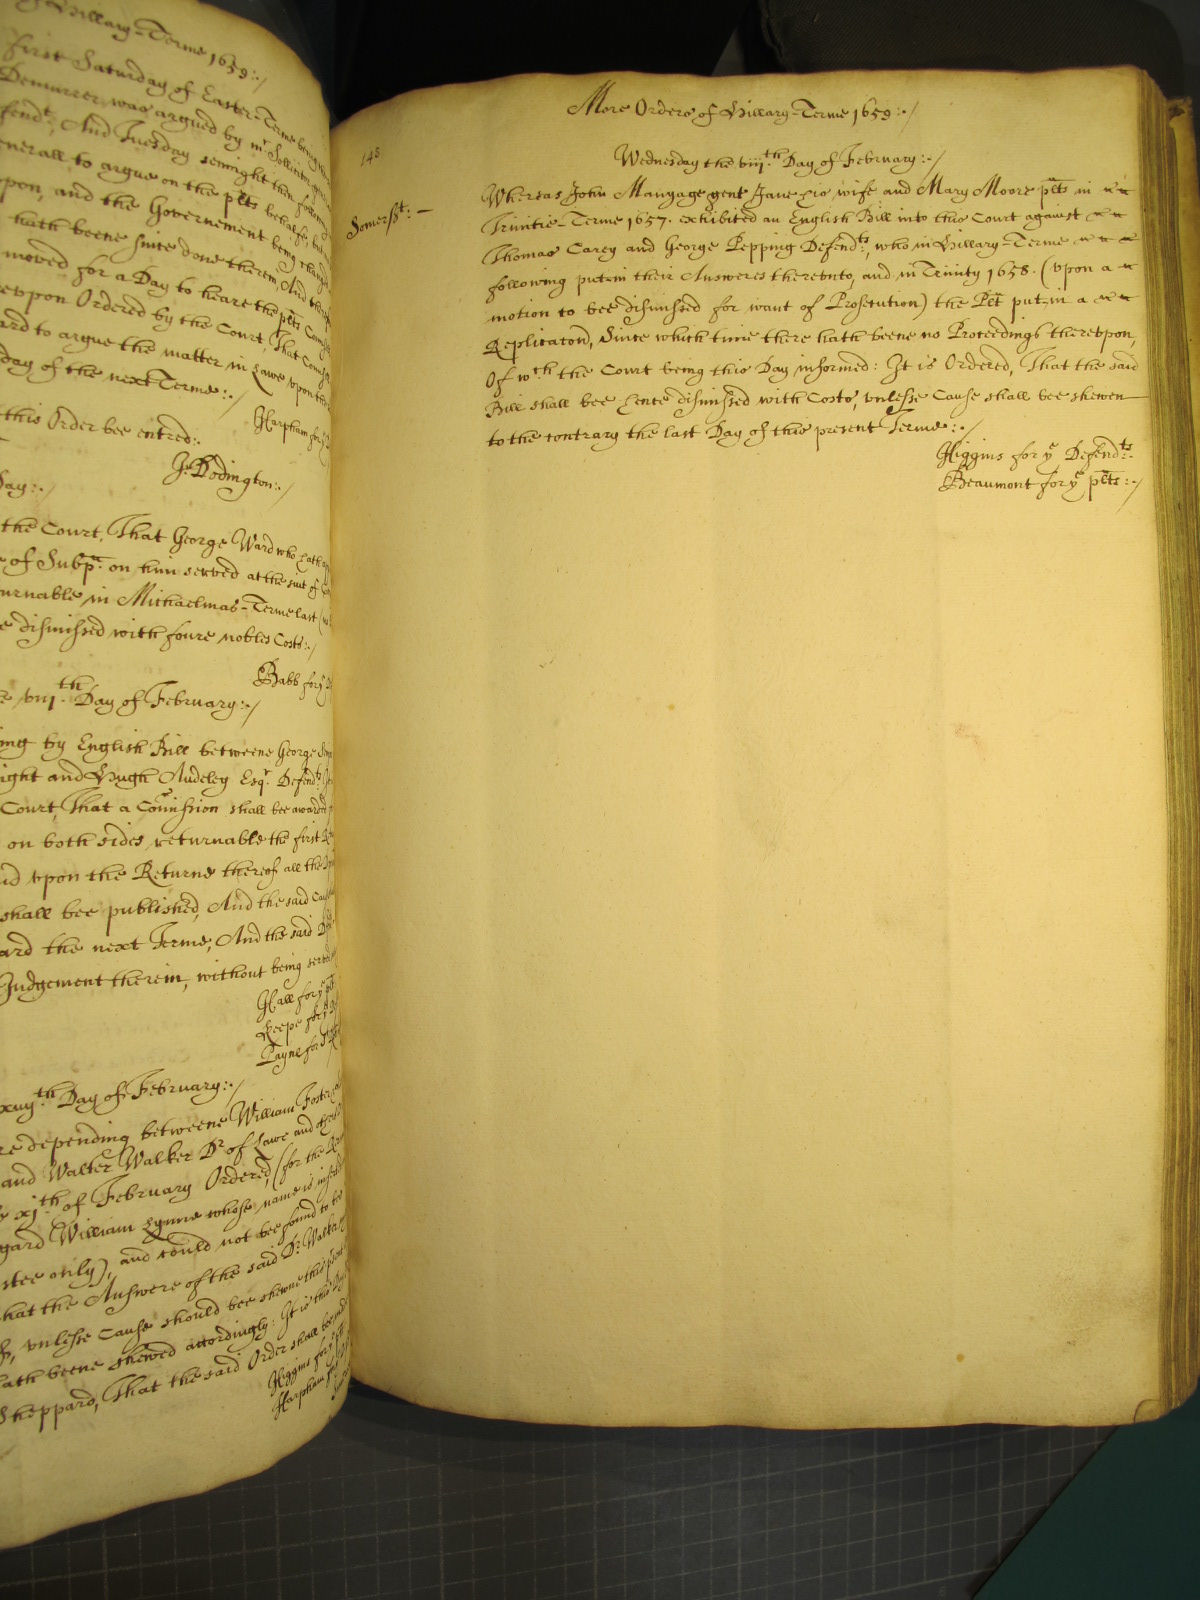 Hillary-Terme 1659:./
first Saturday of Easter-Terme being
Demurrer was argued by mr Sollicitor
fendt: And Tuesday senight then following
enerall to argue on the plts behalfe, but
pon, and the Governement being changed
hath beene since done therein, And the
moved for a Day to heare the plts Councell
revpon Ordered by the Court, That Councell
ard to argue the matter in Lawe vpon the
day of the next Terme:./
Harpham for ye
this Order bee entred:.
J: Dodington:./
Day:./
the Court, That George Ward who hath
e of Subpa: on him served at the suit of
turnable in Michaelmas-Terme last
e dismissed with foure nobles Costs:./
Babb for ye
e viij.th Day of February:./
ing by English Bill betweene George
ight and Hugh Audeley Esqr. Defendts
Court, That a Comission shall bee awarded
on both sides returnable the first
nd vpon the Returne thereof all the
shall bee published, And the said Cause
ard the next Terme, And the said
Judgement therein, without being served
Hall for ye plt
Keepe for ye
Payne for
xiijth Day of February:./
re depending betweene William Foster
and Walter Walker Dr of Lawe and others
xjth of February Ordered, (for the
gard William Lynne whose name is
stee only), and could not bee found to bee
hat the Answere of the said Dr Walker
, vnlesse Cause should bee shewne this
hath beene shewed accordingly: It is this
Sheppard, That the said Order shall bee
Higgins for ye
Harpham for
145
More Orders of Hillary-Terme 1659:./
Wednesday the viij.th Day of February:./
Somersst: —
Whereas John Mangage gent Jane his wife and Mary Moore plts in
Trinitie-Terme 1657. exhibited an English Bill into this Court against
Thomas Carey and George Pepping Defendts, who in Hillary-Terme
following put-in their Answeres therevnto, and in Trinity 1658. (vpon a
motion to bee dismissed for want of Prosecution) the Plt put-in a
Replicacon, Since which time there hath beene no Proceedings therevpon,
Of wch the Court being this Day informed: It is Ordered, That the said
Bill shall bee hence dismissed with Costs, vnlesse Cause shall bee shewen
to the contrary the last Day of this present Terme:./
Higgins for ye Defendts:.
Beaumont for ye plts:./